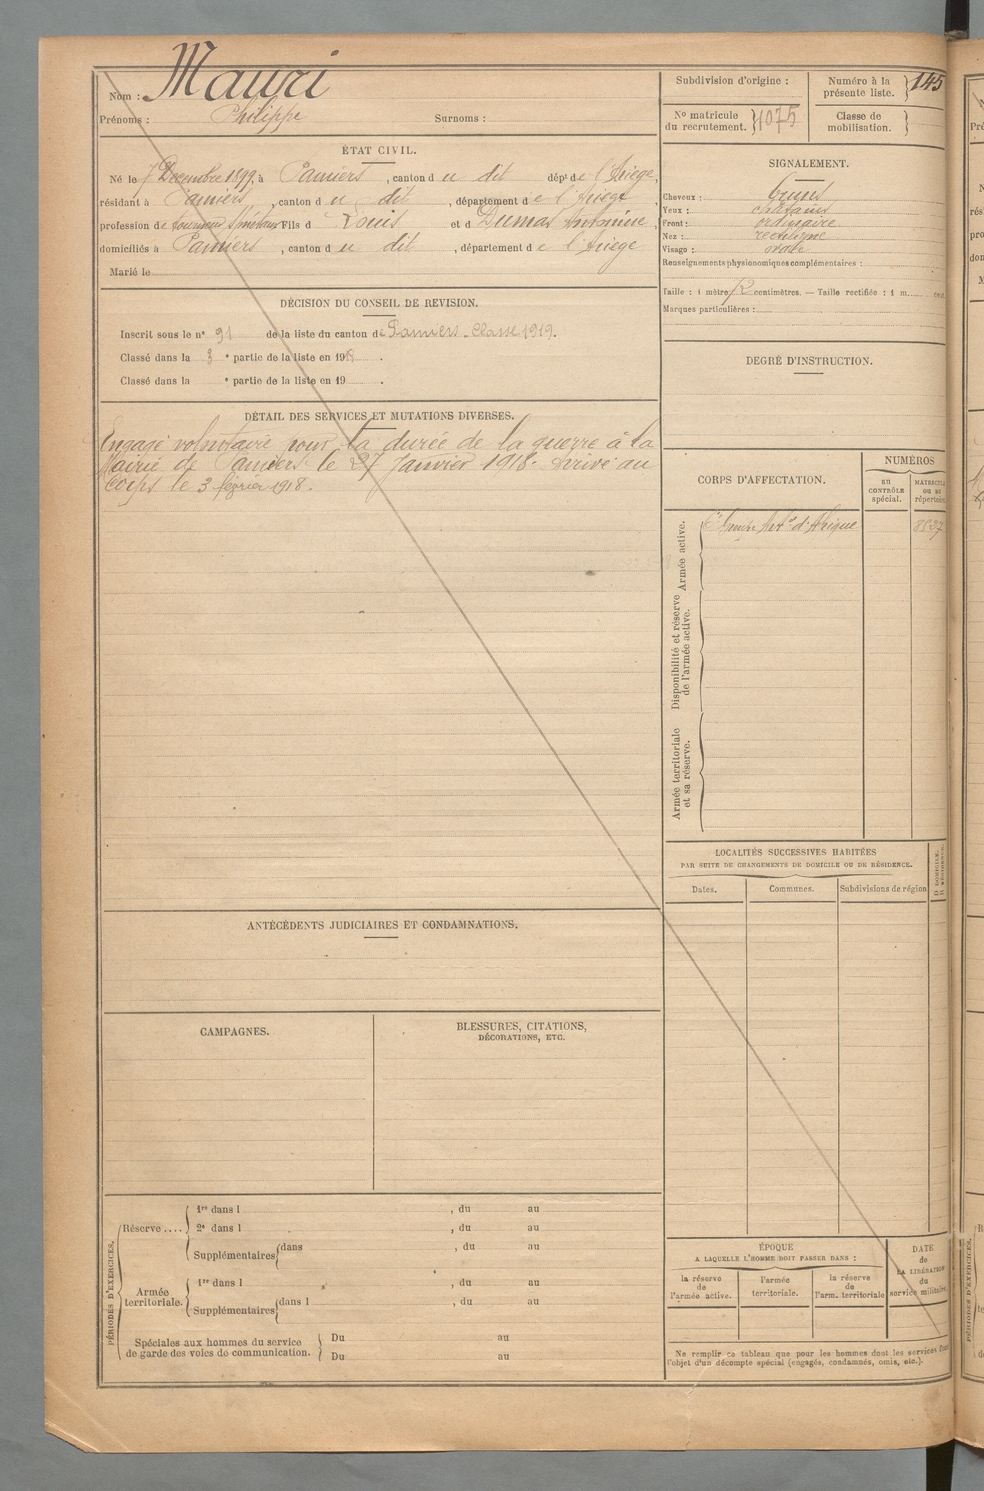 Nom : Mauri
Prénoms : Philippe Surnoms :
ÉTAT CIVIL.
Né le 7 Decembre 1899, à Pamiers, canton du dit dépt de l'Ariège,
résidant à Pamiers, canton du dit, département de l'Ariège,
profession de tourneur s/métaux Fils de Louis et de Dumas Antoinine,
domiciliés à Pamiers, canton du dit, département de l'Ariège
Marié le
DÉCISION DU CONSEIL DE REVISION.
Inscrit sous le n° 91 de la liste du canton de Pamiers - Classe 1919.
Classé dans la 3 e partie de la liste en 1918.
Classé dans la e partie de la liste en 19 .
DÉTAIL DES SERVICES ET MUTATIONS DIVERSES.
Engagé volontaire pour la durée de la guerre à la
Mairie de Pamiers le 27 Janvier 1918. Arrivé au
Corps le 3 février 1918.
ANTÉCÉDENTS JUDICIAIRES ET CONDAMNATIONS.
CAMPAGNES.
BLESSURES, CITATIONS,
DÉCORATIONS, ETC.
PÉRIODES D'EXERCICES.
Réserve ....
1re dans l , du au
2e dans l , du au
Supplémentaires dans , du au
Armée
territoriale.
1re dans l , du au
Supplémentaires dans l , du au
Spéciales aux hommes du service
de garde des voies de communication.
Du au
Du au
Subdivision d'origine :
Numéro à la
présente liste. 145
No matricule
du recrutement. 1075
Classe de
mobilisation.
SIGNALEMENT.
Cheveux : bruns
Yeux : châtains
Front : ordinaire
Nez : rectiligne
Visage : ovale
Renseignements physionomiques complémentaires :
Taille : 1 mètre 72 centimètres. — Taille rectifiée : 1 m. cent.
Marques particulières :
DEGRÉ D'INSTRUCTION.
CORPS D'AFFECTATION.
NUMÉROS
au
CONTRÔLE
spécial.
MATRICULE
OU AU
répertoire.
Armée active.
6e Groupe Art. d'Afrique
Disponibilité et réserve
de l'armée active.
Armée territoriale
et sa réserve.
LOCALITÉS SUCCESSIVES HABITÉES
PAR SUITE DE CHANGEMENTS DE DOMICILE OU DE RÉSIDENCE.
Dates.
Communes.
Subdivisions de région
D DOMICILE.
R RÉSIDENCE.
ÉPOQUE
A LAQUELLE L'HOMME DOIT PASSER DANS :
la réserve
de
l'armée active.
l'armée
territoriale.
la réserve
de
l'arm. territoriale
DATE
de
LA LIBÉRATION
du
service militaire.
Ne remplir ce tableau que pour les hommes dont les services font
l'objet d'un décompte spécial (engagés, condamnés, omis, etc.).